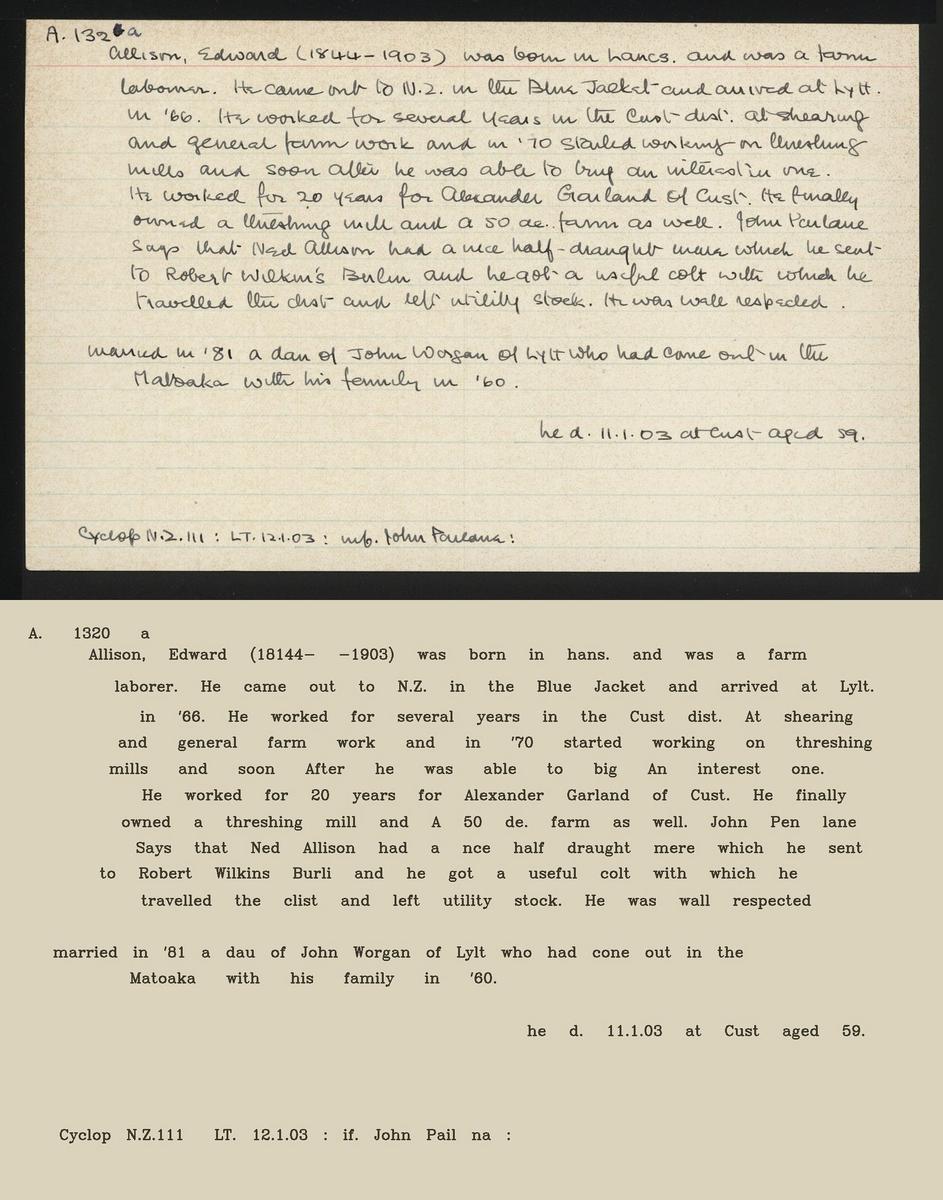 A. 132 a
Allison, Edward (1844-1903) was born in Lancs. and was a farm
labourer. He came out to N.Z. in the Blue Jacket and arrived at Lytt.
in '66. He worked for several years in the Cust dist. at shearing
and general farm work and in '70 started working on threshing
mills and soon after he was able to buy an interest in one.
He worked for 20 years for Alexander Garland of Cust. He finally
owned a threshing mill and a 50 ac. farm as well. John
says that Ned Allison had a nice half-draught mare which he sent
to Robert Wilkin's Berlin and he got a useful colt with which he
travelled the dist and left utility stock. He was well respected.
married in '81 a dau of John Worgan of Lytt who had come out in the
Matoaka with his family in '60.
he d. 11.1.03 at Cust aged 59.
Cyclop N.Z.111 : LT. 12.1.03 : inf. John
A. 1320 a
Allison, Edward (18144– –1903) was born in hans. and was a farm
laborer. He came out to N.Z. in the Blue Jacket and arrived at Lylt.
in '66. He worked for several years in the Cust dist. At shearing
and general farm work and in '70 started working on threshing
mills and soon After he was able to big An interest one.
He worked for 20 years for Alexander Garland of Cust. He finally
owned a threshing mill and A 50 de. farm as well. John Pen lane
Says that Ned Allison had a nce half draught mere which he sent
to Robert Wilkins Burli and he got a useful colt with which he
travelled the clist and left utility stock. He was wall respected
married in '81 a dau of John Worgan of Lylt who had cone out in the
Matoaka with his family in '60.
he d. 11.1.03 at Cust aged 59.
Cyclop N.Z.111 LT. 12.1.03 : if. John Pail na :